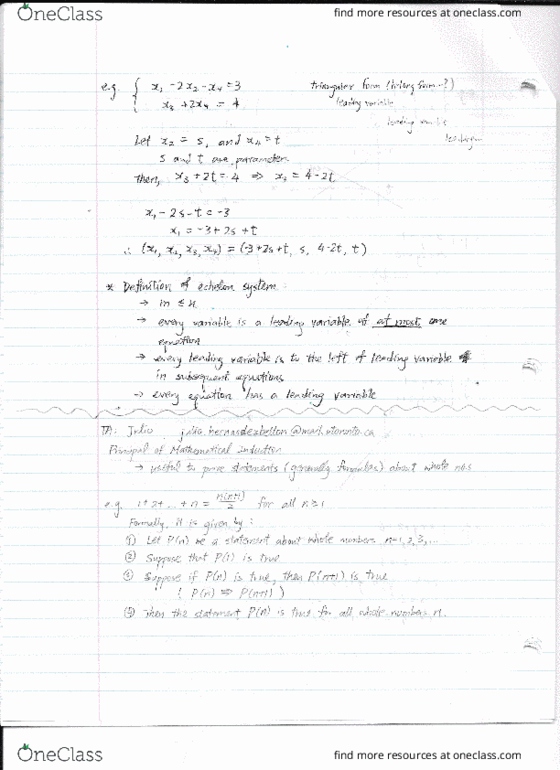 OneClass
find more resources at oneclass.com
e.g. { x₁ - 2x₂ - x₄ = 3
x₃ + 2x₄ = 4
triangular form
leading variable
Let x₂ = s, and x₄ = t
s and t are parameter
then, x₃ + 2t = 4 ⇒ x₃ = 4-2t
x₁ - 2s - t = -3
x₁ = -3 + 2s + t
∴ (x₁, x₂, x₃, x₄) = (-3+2s+t, s, 4-2t, t)
* Definition of echelon system:
→ m ≤ n
→ every variable is a leading variable of at most one
equation
→ every leading variable is to the left of leading variable
in subsequent equations
→ every equation has a leading variable
TA: Julio
Principal of Mathematical Induction
→ useful to prove statements (generally formulas) about whole nos
e.g. 1+2+...+n = n(n+1)/2 for all n ≥ 1
Formally, it is given by:
① Let P(n) be a statement about whole numbers n=1,2,3,...
② Suppose that P(1) is true
③ Suppose if P(n) is true, then P(n+1) is true
( P(n) ⇒ P(n+1) )
Then the statement P(n) is true for all whole numbers n.
OneClass
find more resources at oneclass.com